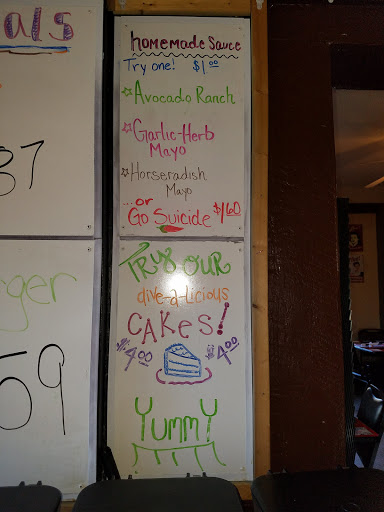 als
87
rger
59
homemade Sauce
Try one! $1.00
☆Avocado Ranch
☆Garlic-Herb
Mayo
☆Horseradish
Mayo
...or
Go Suicide $1.60
TRY OUR
dive-a-licious
CAKES!
$4.00 $4.00
YUMMY